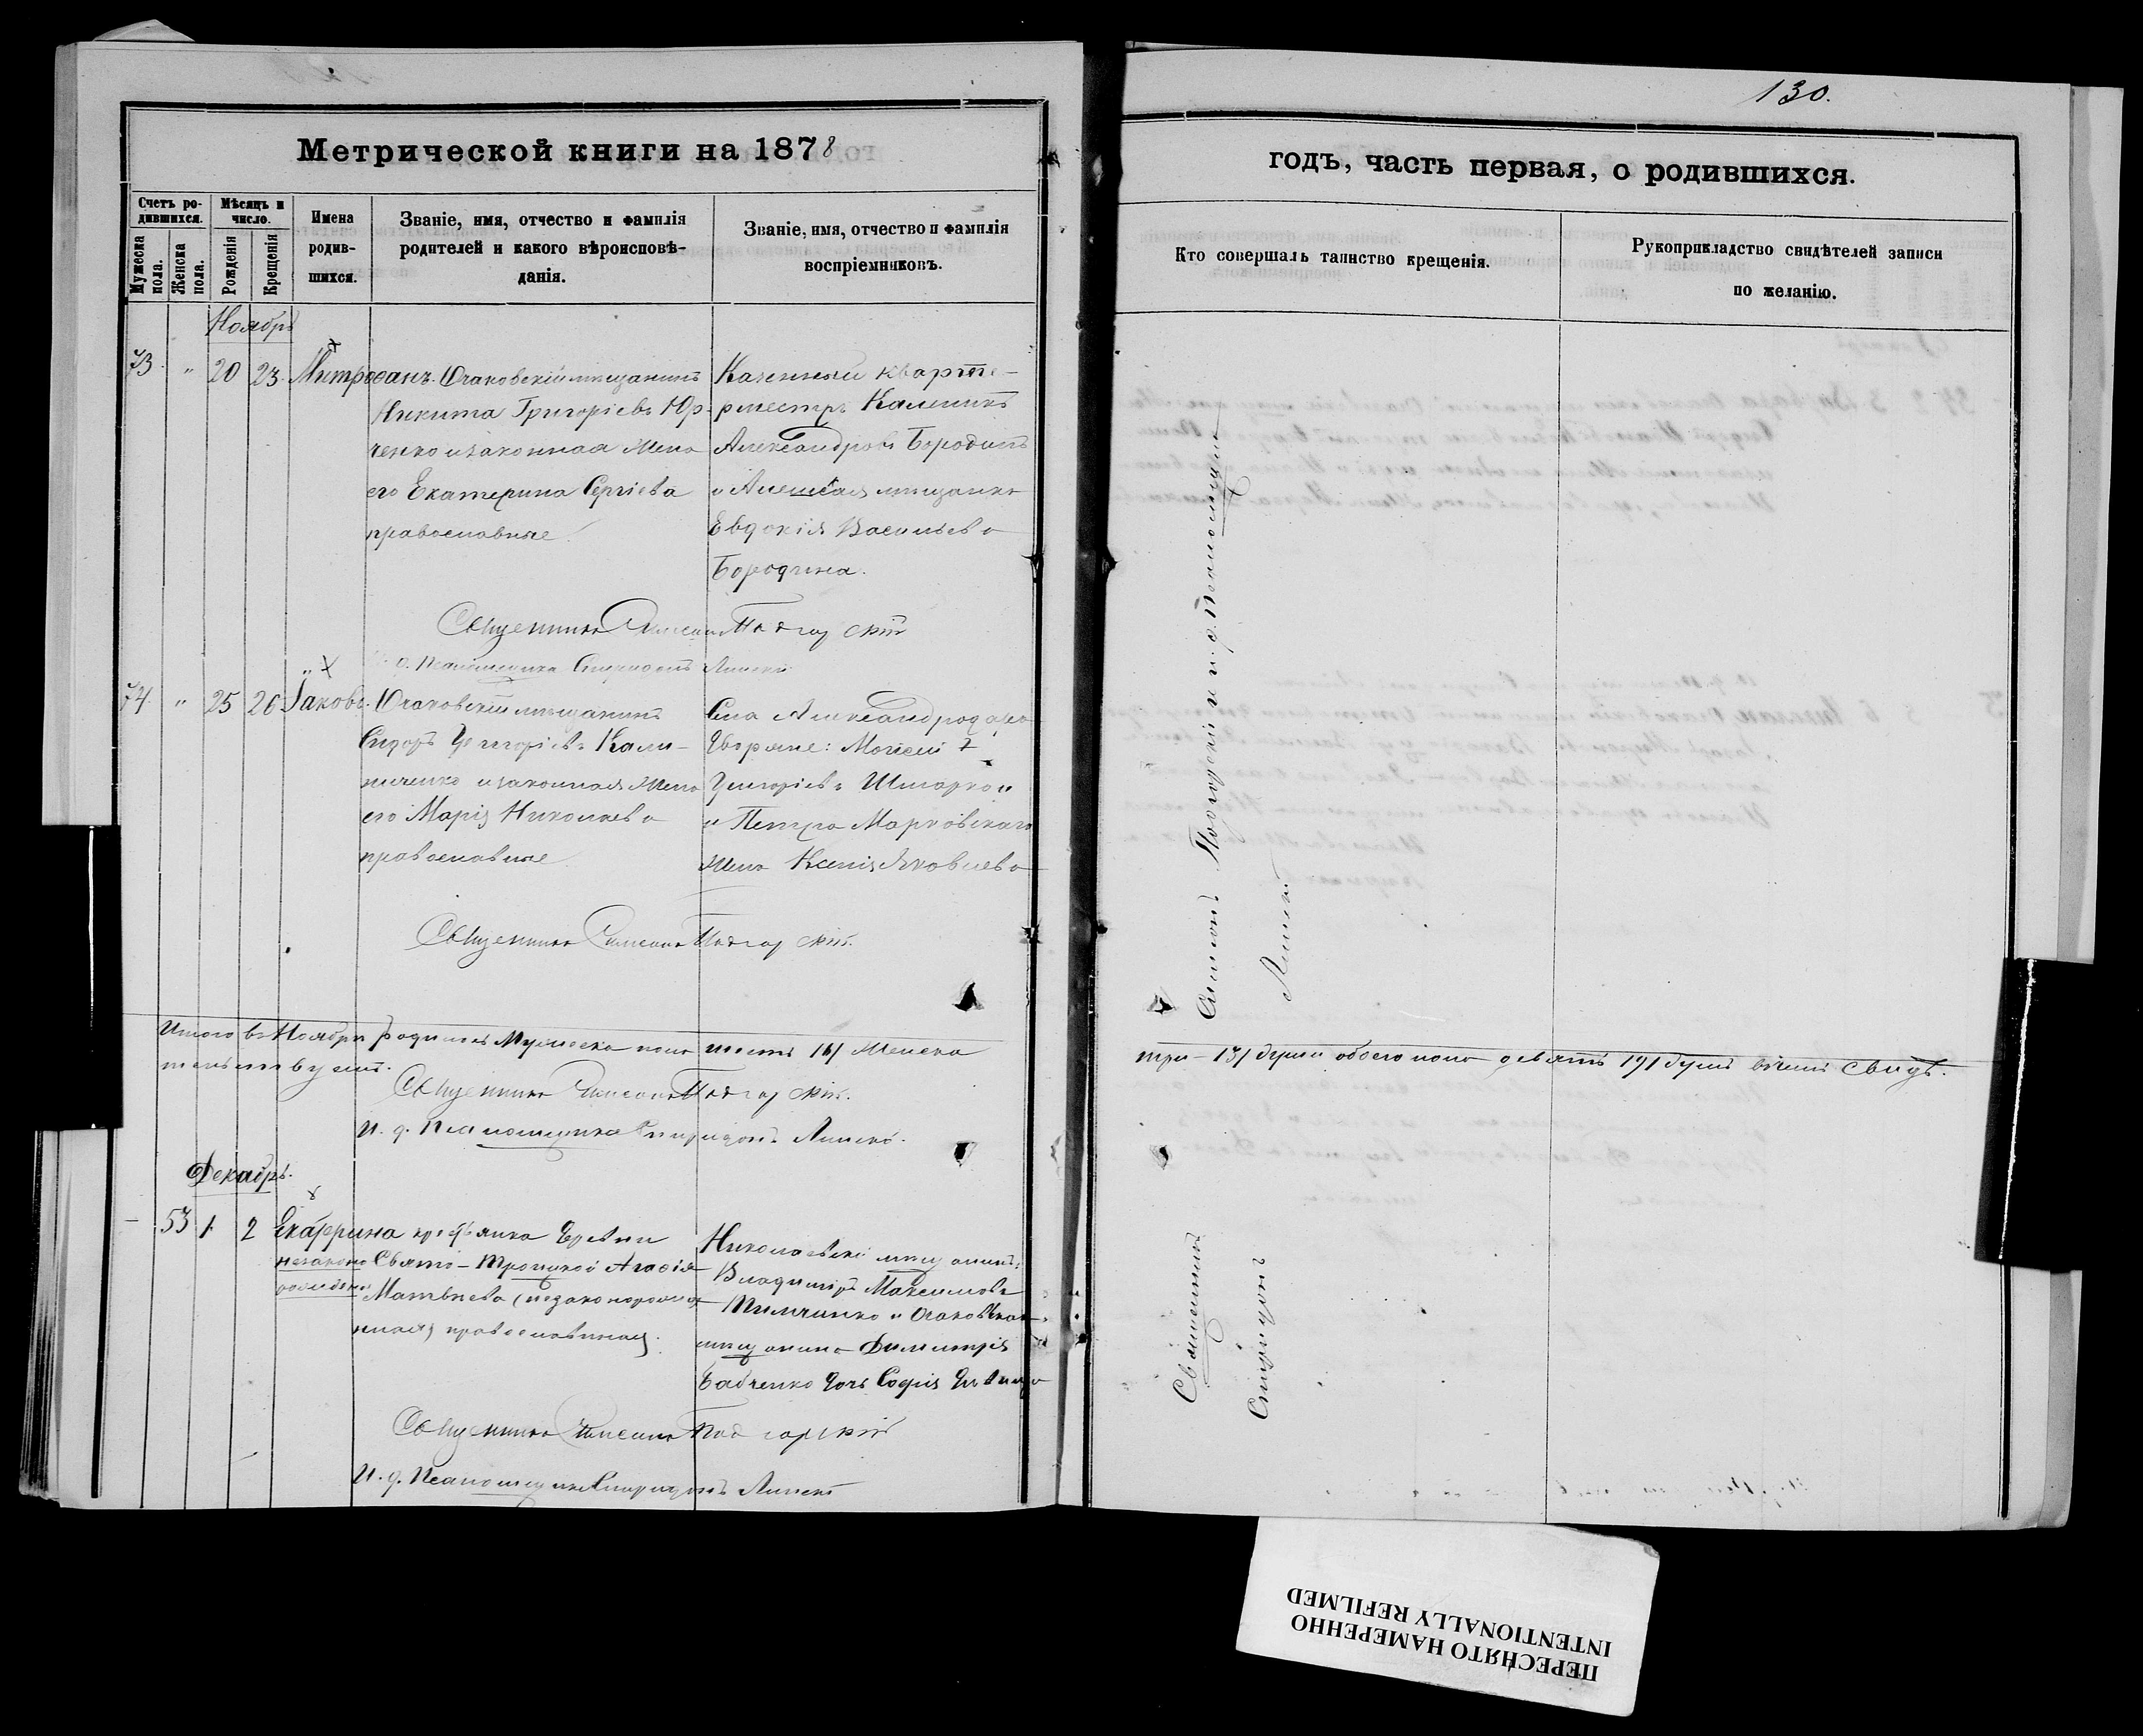 130.
Метрической книги на 1878
годъ, часть первая, о родившихся.
Счетъ ро-
дившихся.
Мужеска пола.
Женска пола.
Мѣсяцъ и
число.
Рожденія
Крещенія
Имена
родив-
шихся.
Званіе, имя, отчество и фамилія
родителей и какого вѣроисповѣ-
данія.
Званіе, имя, отчество и фамилія
воспріемниковъ.
Кто совершалъ таинство крещенія.
Рукоприкладство свидѣтелей записи
по желанію.
Ноябрь
73. " 20 23. Митрофанъ.
Очаковскій мѣщанинъ
Никита Григоріевъ Юр-
ченко и законная жена
его Екатерина Сергіева
православные.
Казенный кварте-
рместръ
Александровъ Бородинъ
и мѣщанка
Евдокія Васильева
Бородина.
Священникъ Симеонъ Подгорскій
и. д. Псаломщика Спиридонъ
74. " 25 26 Іаковъ.
Очаковскій мѣщанинъ
Сидоръ Григоріевъ Кали-
ниченко и законная жена
его Марія Николаева
православные
Села Александродара
дворяне: Моисей
Григоріевъ
и Петра Марковскаго
жена Ксенія Яковлева
Священникъ Симеонъ Подгорскій.
Итого въ Ноябрѣ родилось Мужеска пола шесть /6/ Женска
три /3/ души обоего пола девять /9/ душъ въ чемъ свидѣ-
тельствуемъ.
Священникъ Симеонъ Подгорскій.
И. д. Псаломщика Спиридонъ
Декабрь.
— 53 1. 2 Екатерина
незаконо
рожденная
крестьянка деревни
Свято-Троицкой Агафія
Матвѣева (незаконорожде-
нная) православная.
Николаевскій мѣщанинъ
Владиміръ Максимовъ
и Очаковскаго
мѣщанина Димитрія
Бабченко дочь Софія дѣвица
Священникъ Симеонъ Подгорскій
И. д. Псаломщика Спиридонъ
Священникъ Симеонъ Подгорскій и и. д. Псаломщика
Спиридонъ
ПЕРЕСНЯТО НАМЕРЕННО
INTENTIONALLY REFILMED